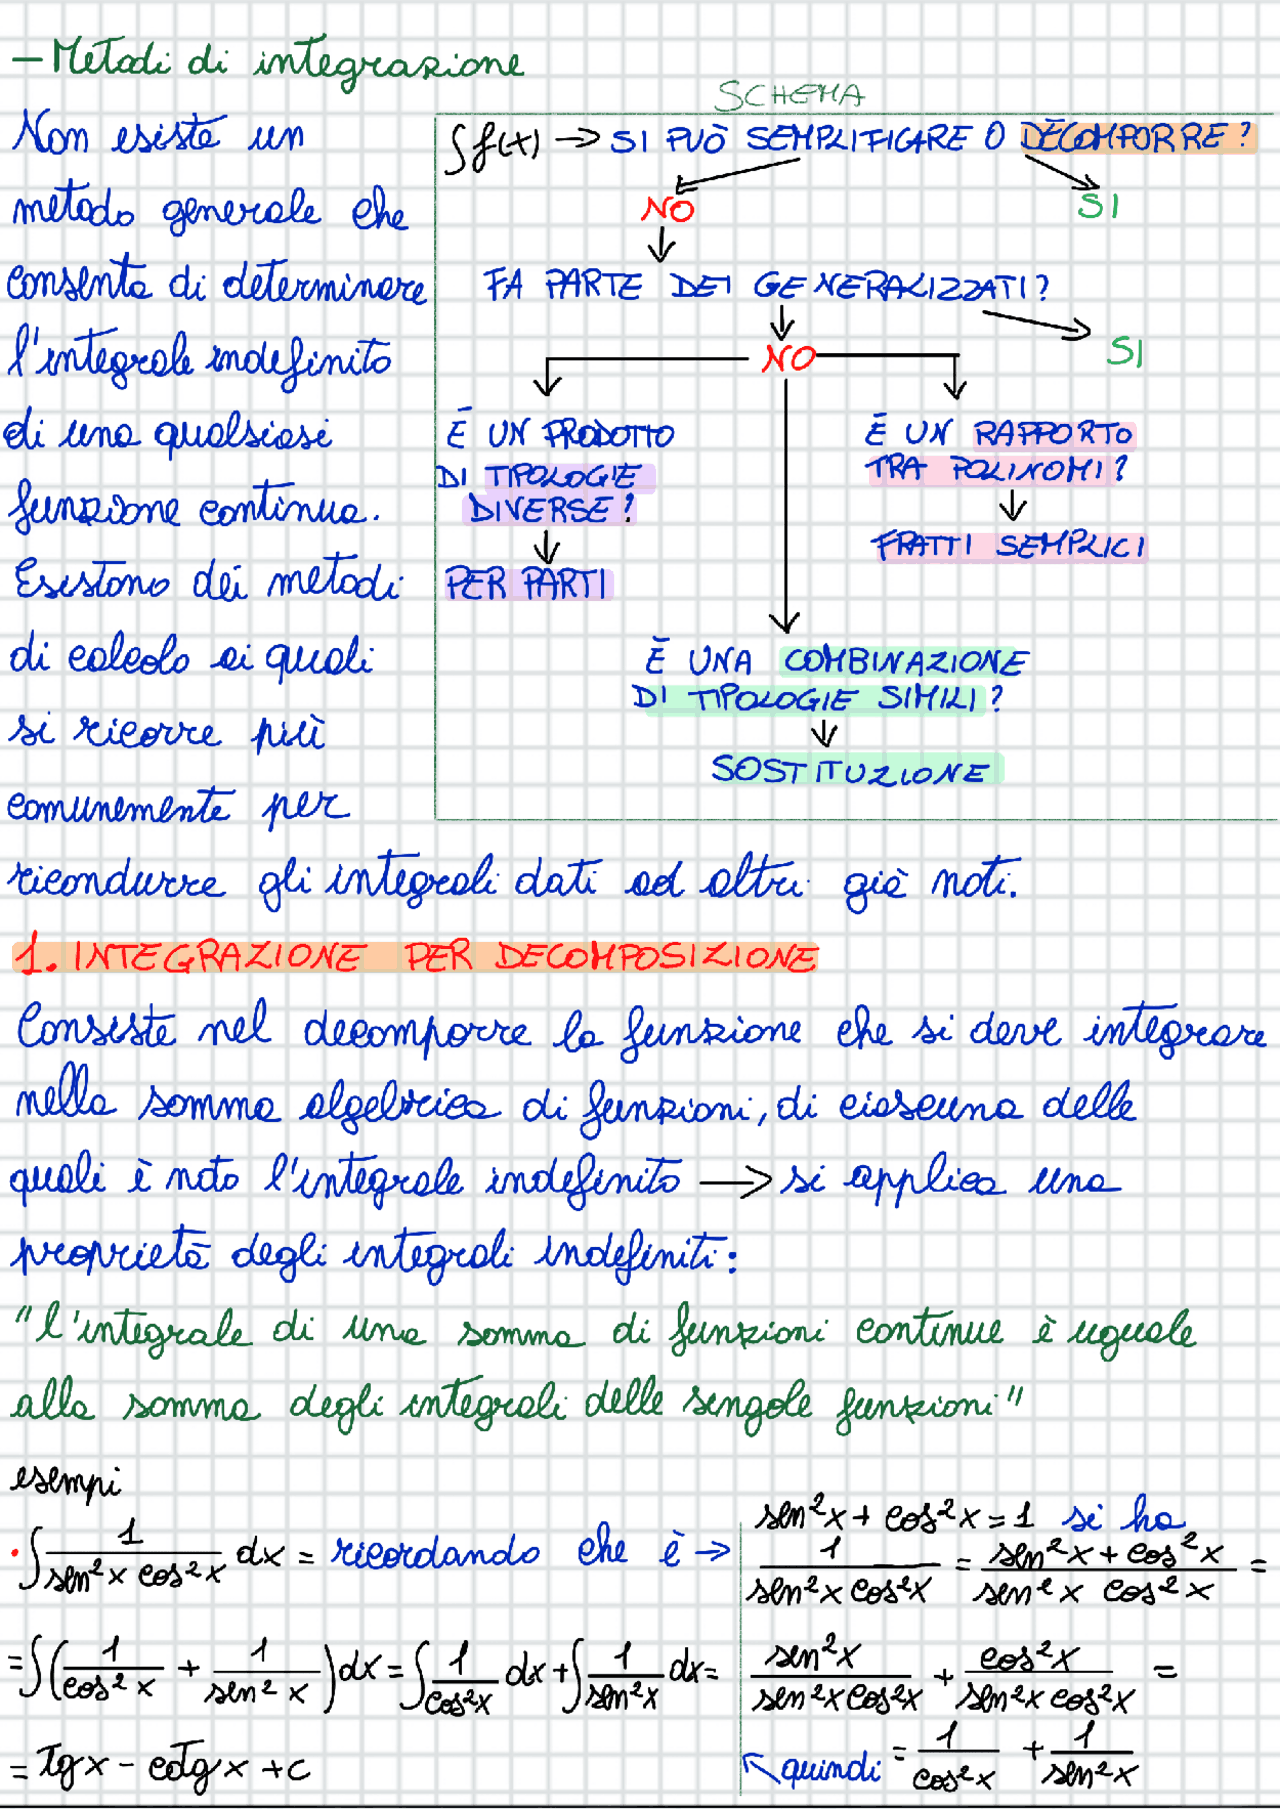 – Metodi di integrazione
Non esiste un
metodo generale che
consenta di determinare
l'integrale indefinito
di una qualsiasi
funzione continua.
Esistono dei metodi
di calcolo ai quali
si ricorre più
comunemente per
ricondurre gli integrali dati ad altri già noti.
SCHEMA
∫f(x) → SI PUÒ SEMPLIFICARE O DECOMPORRE?
NO SI
FA PARTE DEI GENERALIZZATI?
NO SI
È UN PRODOTTO
DI TIPOLOGIE
DIVERSE?
PER PARTI
È UN RAPPORTO
TRA POLINOMI?
FRATTI SEMPLICI
È UNA COMBINAZIONE
DI TIPOLOGIE SIMILI?
SOSTITUZIONE
1. INTEGRAZIONE PER DECOMPOSIZIONE
Consiste nel decomporre la funzione che si deve integrare
nella somma algebrica di funzioni, di ciascuna delle
quali è noto l'integrale indefinito → si applica una
proprietà degli integrali indefiniti:
"l'integrale di una somma di funzioni continue è uguale
alla somma degli integrali delle singole funzioni"
esempi
• ∫ 1/(sen²x cos²x) dx = ricordando che è →
= ∫(1/cos²x + 1/sen²x)dx = ∫ 1/cos²x dx + ∫ 1/sen²x dx =
= tgx - cotgx + c
sen²x + cos²x = 1 si ha
1/(sen²x cos²x) = (sen²x + cos²x)/(sen²x cos²x) =
sen²x/(sen²x cos²x) + cos²x/(sen²x cos²x) =
↖ quindi = 1/cos²x + 1/sen²x